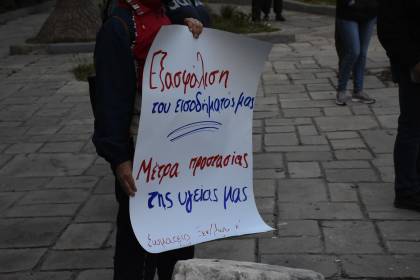 Εξασφάλιση
του εισοδήματός μας
Μέτρα προστασίας
της υγείας μας
Σωματείο